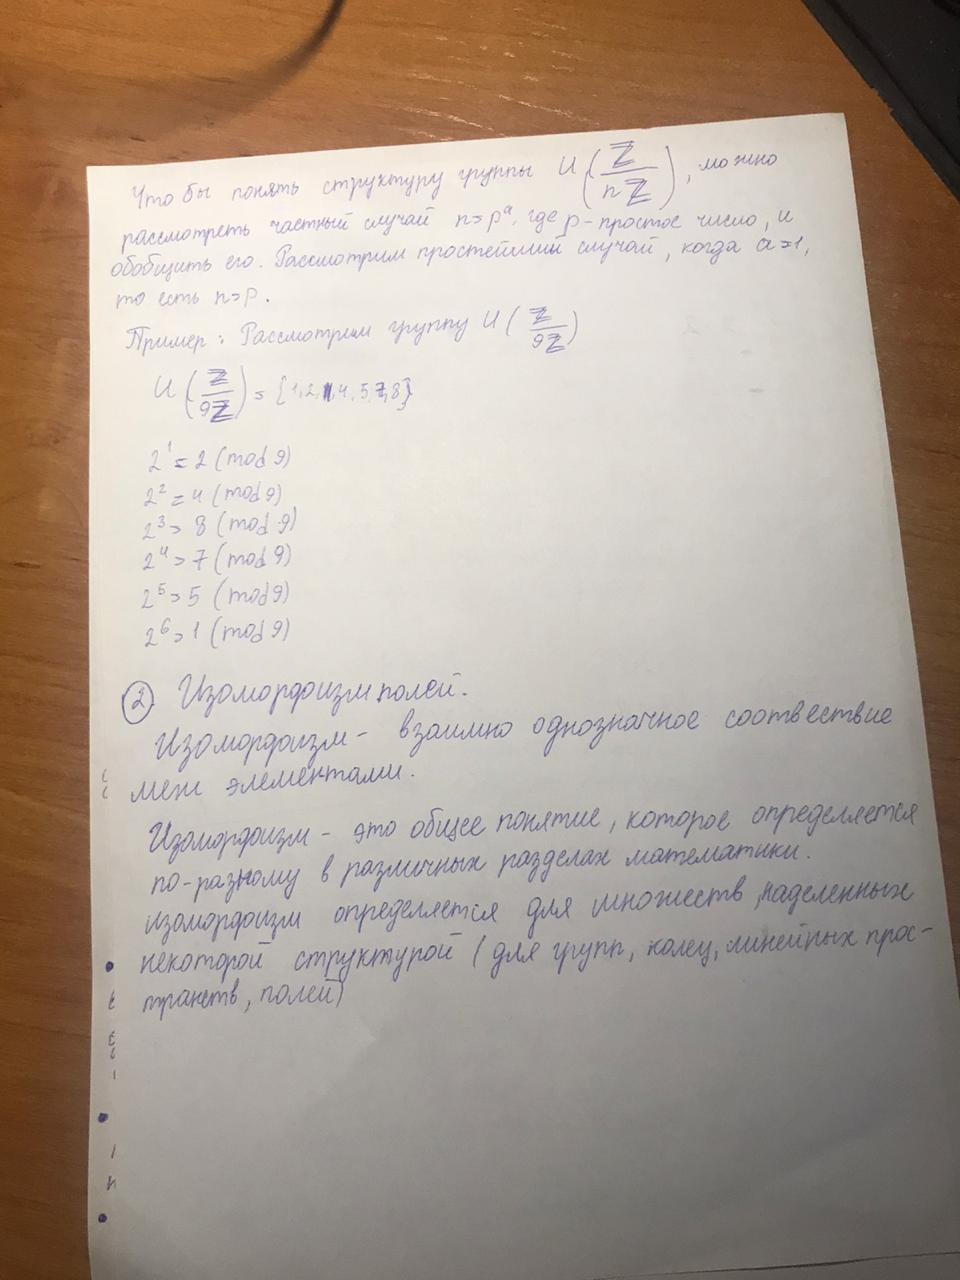 Что бы понять структуру группы U(Z/nZ), можно
рассмотреть частный случай n=pᵃ, где p - простое число, и
обобщить его. Рассмотрим простейший случай, когда a=1,
то есть n=p.
Пример: Рассмотрим группу U(Z/9Z)
U(Z/9Z) = {1,2,4,5,7,8}
2¹ = 2 (mod 9)
2² = 4 (mod 9)
2³ = 8 (mod 9)
2⁴ = 7 (mod 9)
2⁵ = 5 (mod 9)
2⁶ = 1 (mod 9)
② Изоморфизм полей.
Изоморфизм - взаимно однозначное соотвествие
меж элементами.
Изоморфизм - это общее понятие, которое определяется
по-разному в различных разделах математики.
изоморфизм определяется для множеств, наделенных
некоторой структурой (для групп, колец, линейных прос-
транств, полей)